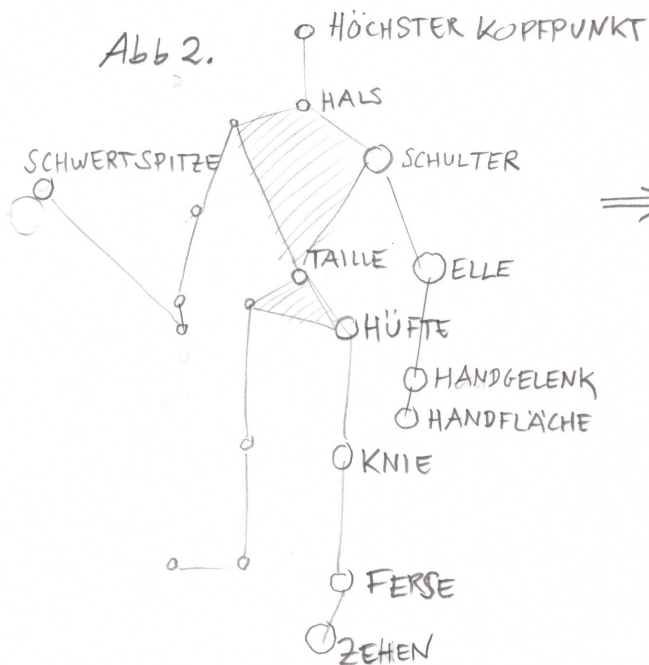 Abb 2.
HÖCHSTER KOPFPUNKT
HALS
SCHWERTSPITZE
SCHULTER
TAILLE
ELLE
HÜFTE
HANDGELENK
HANDFLÄCHE
KNIE
FERSE
ZEHEN